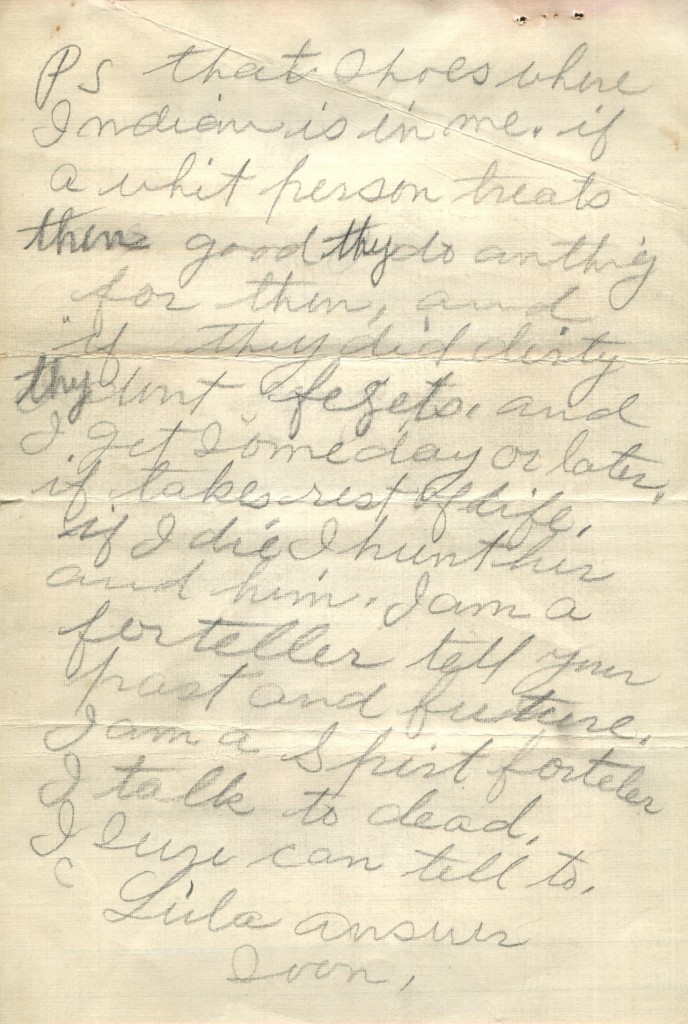 PS that shoes where
Indian is in me. if
a whit person treats
them good thy do anthig
for then, and
if they did dirty
thy wnt fegets. and
I get someday or later.
if takes rest of life.
if I die I hunt her
and him. I am a
forteller tell your
past and future.
I am a Spirt forteler
I talk to dead.
I sure can tell to.
Lula answer
Soon,